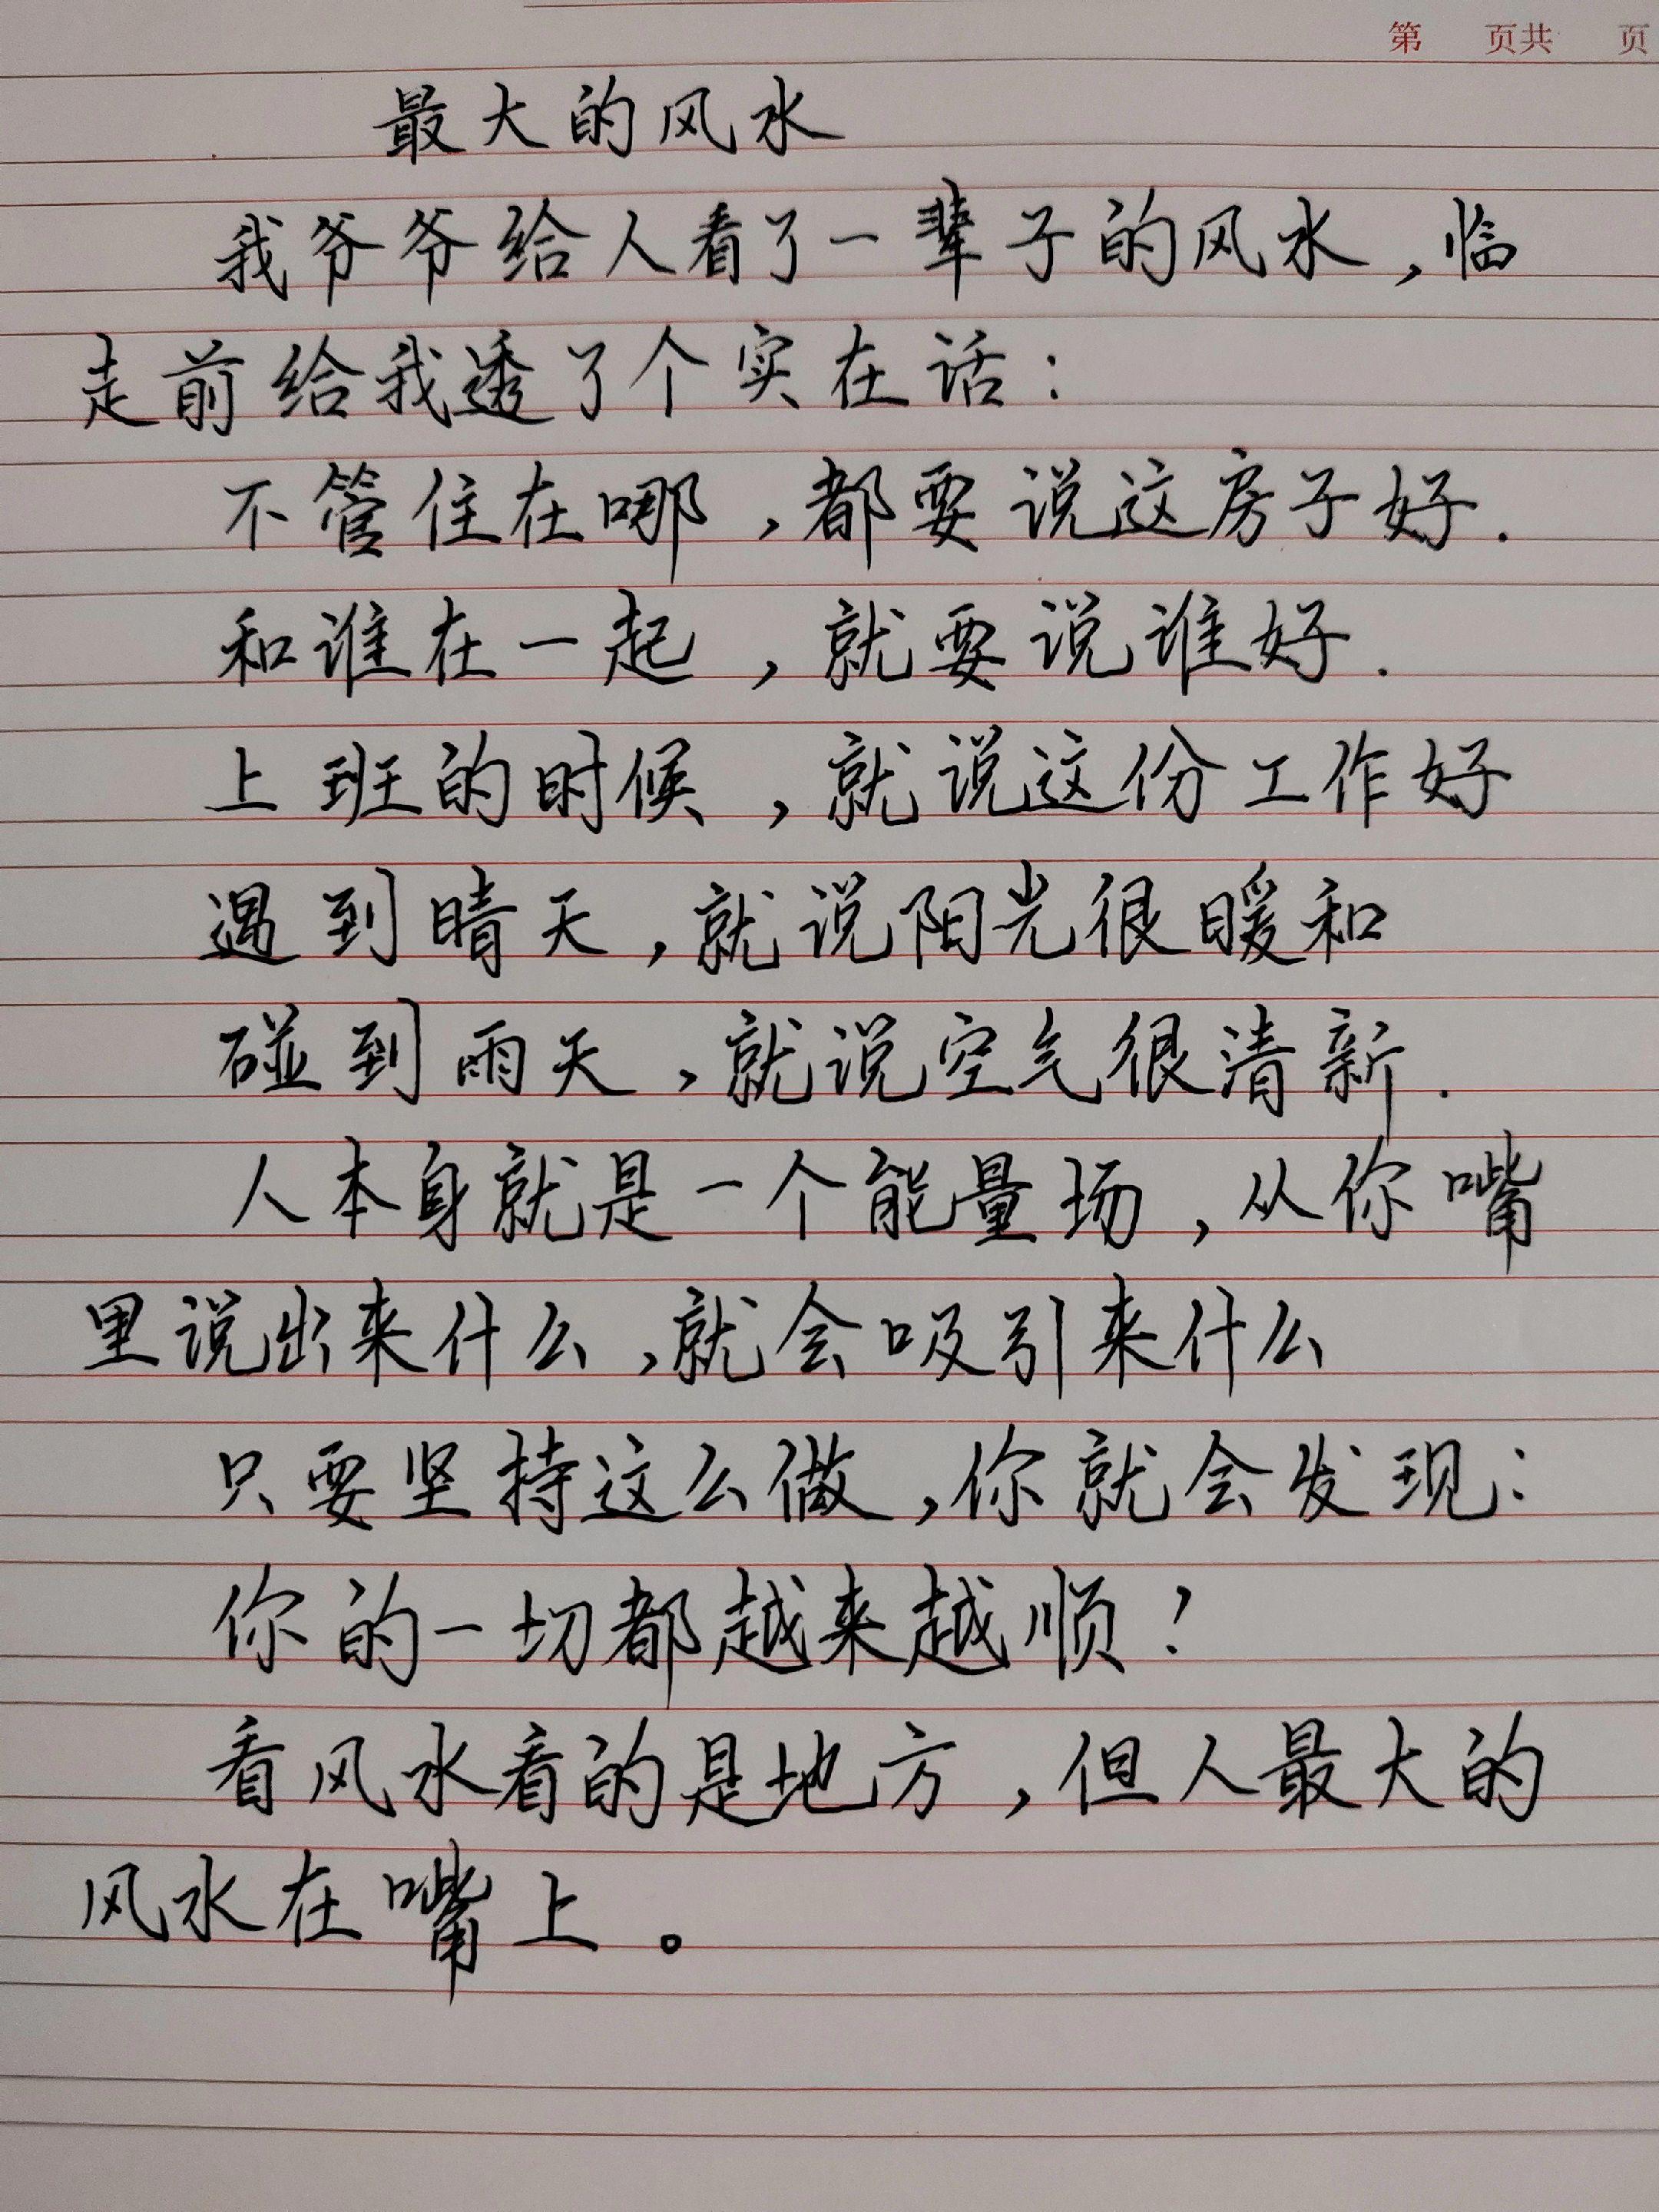 第 页共 页
最大的风水
我爷爷给人看了一辈子的风水，临
走前给我透了个实在话：
不管住在哪，都要说这房子好.
和谁在一起，就要说谁好.
上班的时候，就说这份工作好
遇到晴天，就说阳光很暖和
碰到雨天，就说空气很清新.
人本身就是一个能量场，从你嘴
里说出来什么，就会吸引来什么
只要坚持这么做，你就会发现：
你的一切都越来越顺！
看风水看的是地方，但人最大的
风水在嘴上。